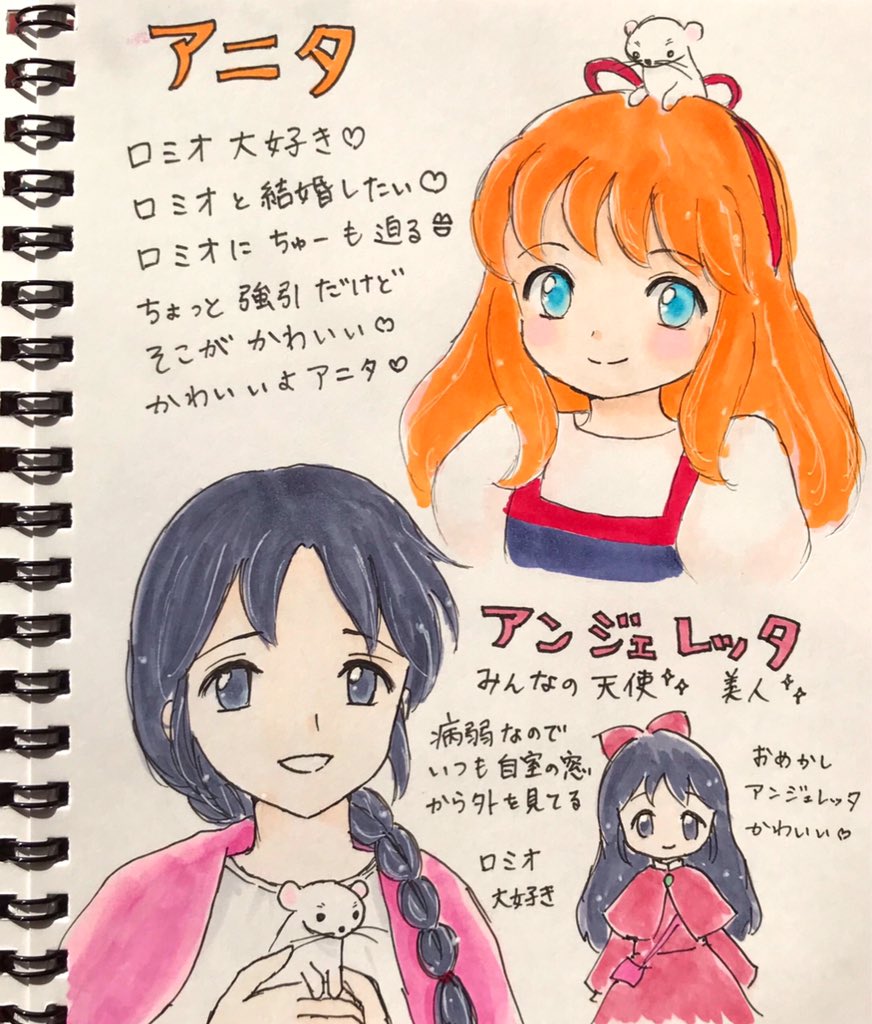 アニタ
ロミオ 大好き♡
ロミオと結婚したい♡
ロミオに ちゅーも迫る
ちょっと 強引 だけど
そこが かわいい♡
かわいいよ アニタ♡
アンジェレッタ
みんなの 天使 美人
病弱なので
いつも自室の窓
から外を見てる
ロミオ
大好き
おめかし
アンジェレッタ
かわいい♡